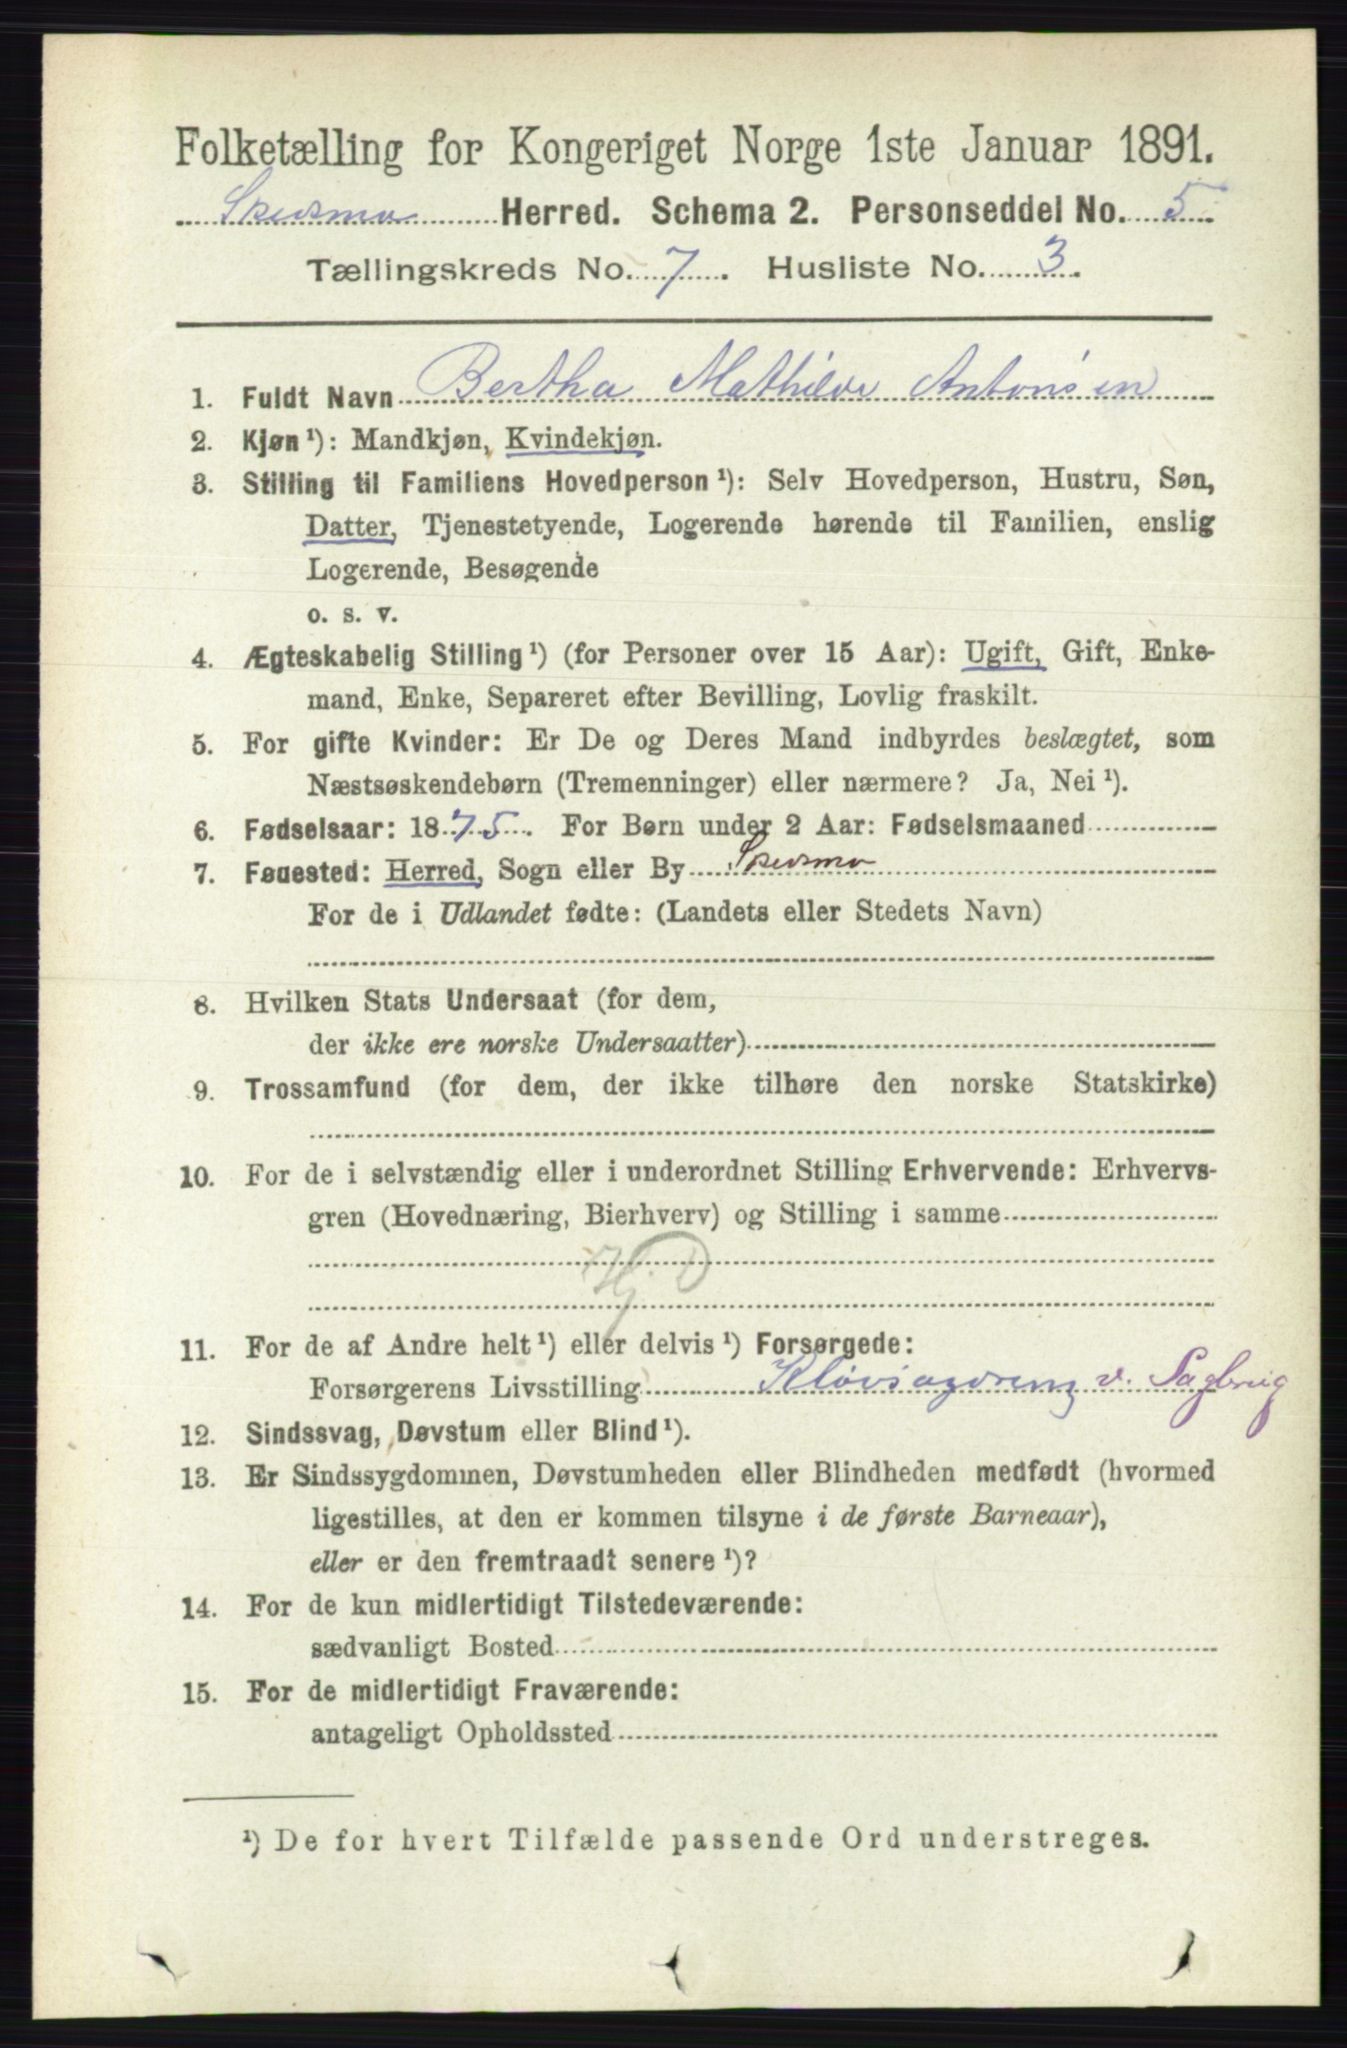 Folketælling for Kongeriget Norge 1ste Januar 1891.
Skedsmo Herred. Schema 2. Personseddel No. 5.
Tællingskreds No. 7. Husliste No. 3.
1. Fuldt Navn Bertha Mathilde Antonsen
2. Kjøn ¹): Mandkjøn, Kvindekjøn.
3. Stilling til Familiens Hovedperson ¹): Selv Hovedperson, Hustru, Søn,
Datter, Tjenestetyende, Logerende hørende til Familien, enslig
Logerende, Besøgende
o. s. v.
4. Ægteskabelig Stilling ¹) (for Personer over 15 Aar): Ugift, Gift, Enke-
mand, Enke, Separeret efter Bevilling, Lovlig fraskilt.
5. For gifte Kvinder: Er De og Deres Mand indbyrdes beslægtet, som
Næstsøskendebørn (Tremenninger) eller nærmere? Ja, Nei ¹).
6. Fødselsaar: 1875. For Børn under 2 Aar: Fødselsmaaned
7. Fødested: Herred, Sogn eller By Skedsmo
For de i Udlandet fødte: (Landets eller Stedets Navn)
8. Hvilken Stats Undersaat (for dem,
der ikke ere norske Undersaatter)
9. Trossamfund (for dem, der ikke tilhøre den norske Statskirke)
10. For de i selvstændig eller i underordnet Stilling Erhvervende: Erhvervs-
gren (Hovednæring, Bierhverv) og Stilling i samme
Hj. D
11. For de af Andre helt ¹) eller delvis ¹) Forsørgede:
Forsørgerens Livsstilling Kløvsagdreng v. Sagbrug
12. Sindssvag, Døvstum eller Blind ¹).
13. Er Sindssygdommen, Døvstumheden eller Blindheden medfødt (hvormed
ligestilles, at den er kommen tilsyne i de første Barneaar),
eller er den fremtraadt senere ¹)?
14. For de kun midlertidigt Tilstedeværende:
sædvanligt Bosted
15. For de midlertidigt Fraværende:
antageligt Opholdssted
¹) De for hvert Tilfælde passende Ord understreges.